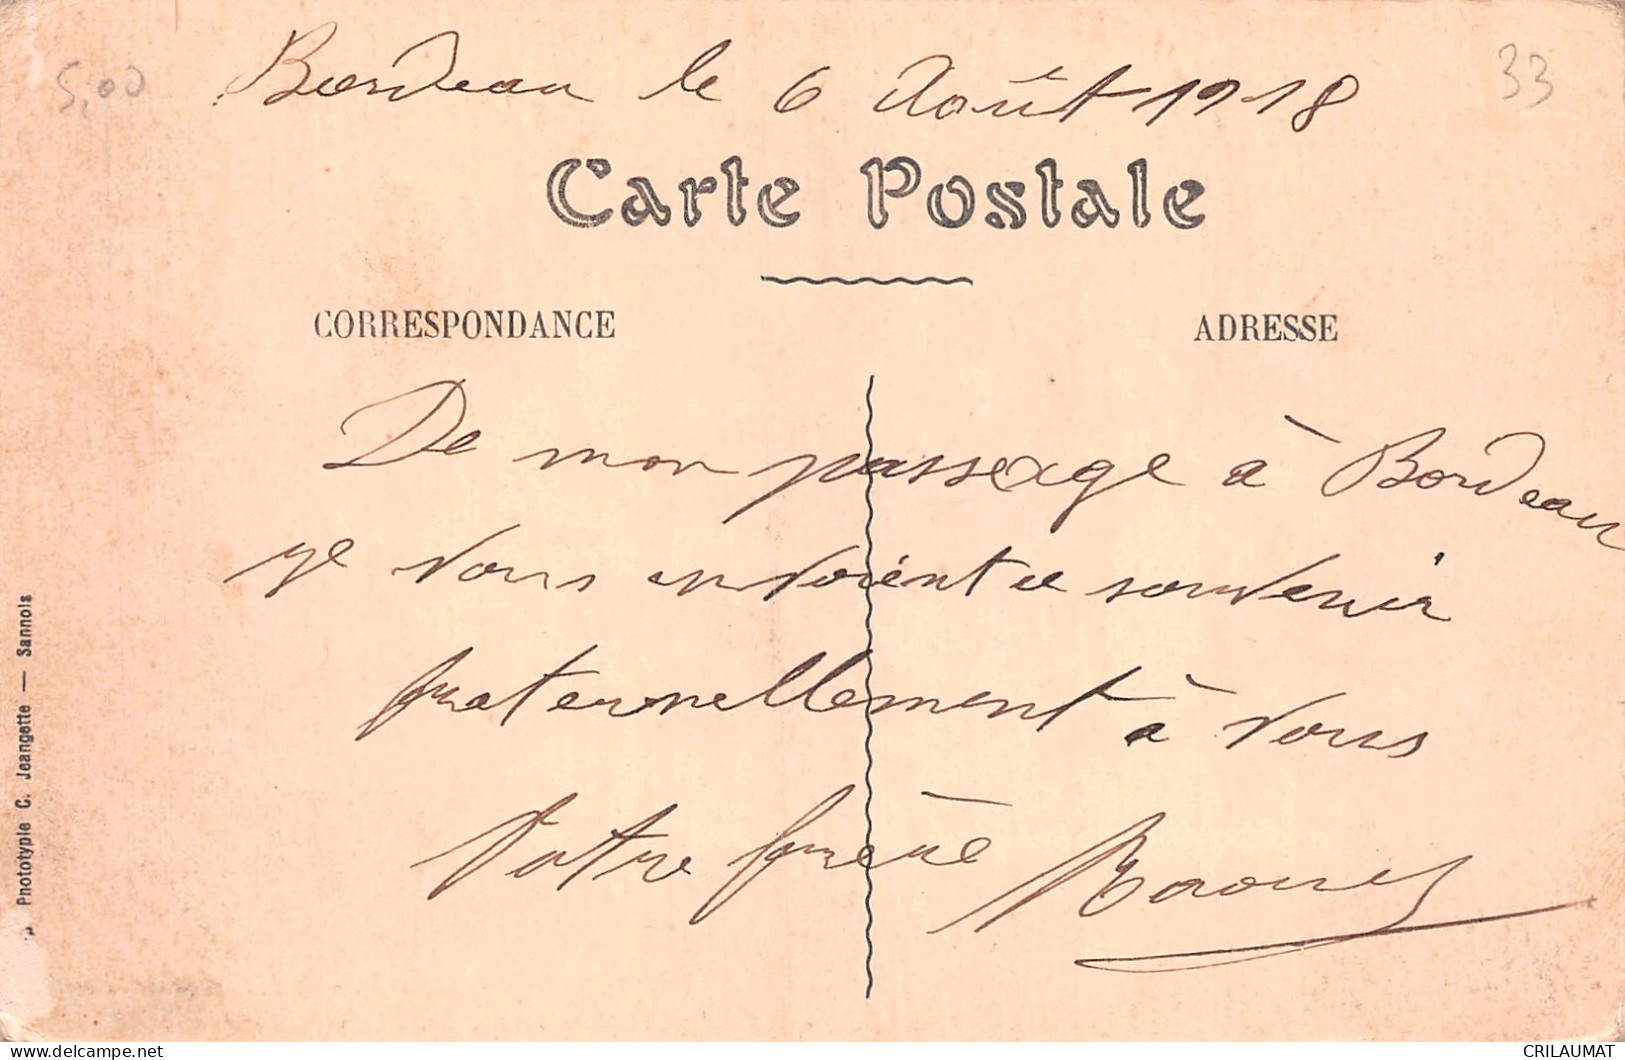 5,00
33
Bordeau le 6 Août 1918
Carte Postale
CORRESPONDANCE
ADRESSE
De mon passage à Bordeau
je vous envoient ce souvenir
fraternellement à vous
Votre frère
Phototypie C. Jeangette — Sannois
CRILAUMAT